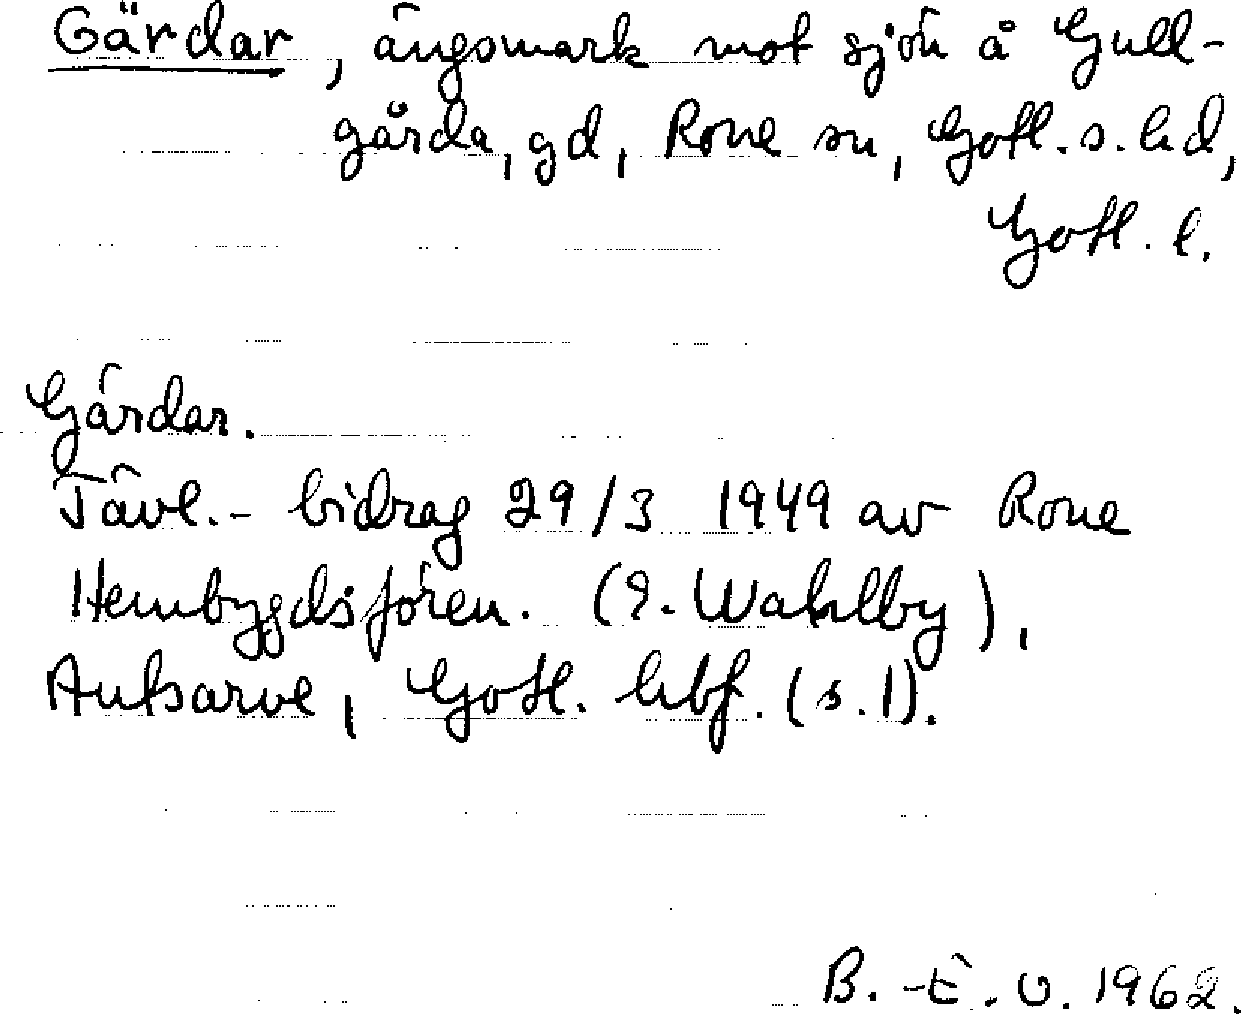 Gärdar, ängsmark mot sjön å Gull-
gårda, gd, Rone sn, Gotl. s. hd,
Gotl. l.
Gärdar.
Tävl.- bidrag 29/3 1949 av Rone
Hembygdsfören. (E. Wahlby),
Autsarve, Gotl. hbf. (s. 1).
B. -E. O. 1962.